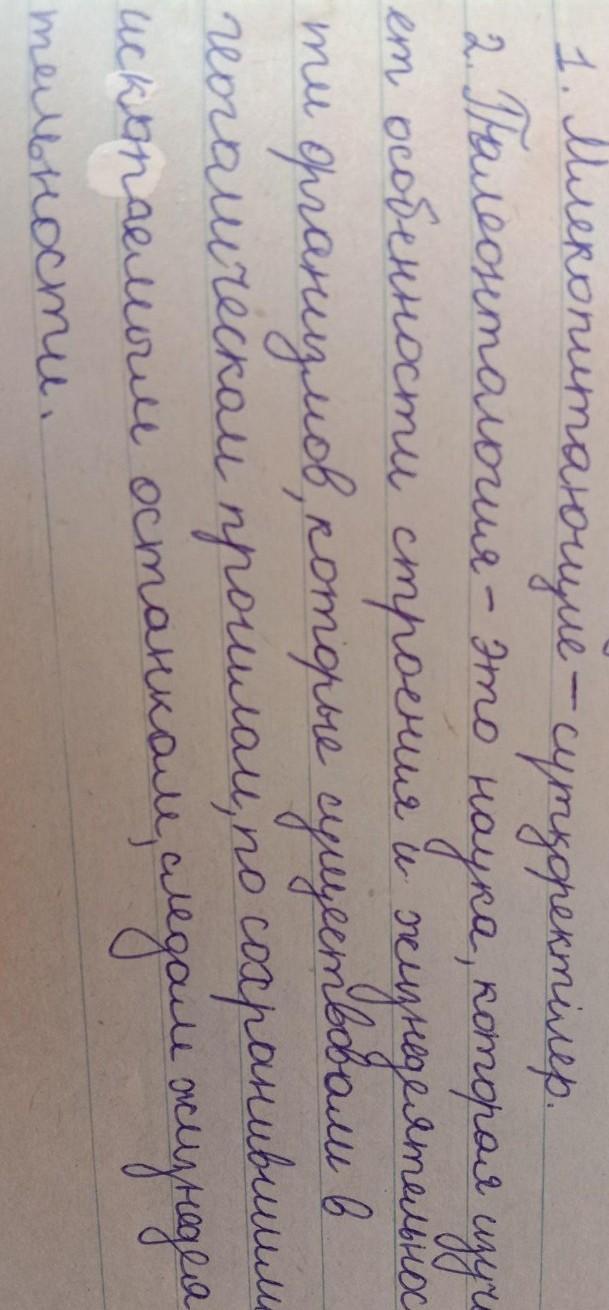 1. Млекопитающие – сутқоректілер.
2. Палеонталогия – это наука, которая изуч
ет особенности строения и жизнедеятельнос
ти организмов, которые существовали в
геогалическом прошлам, по сохранившим
ископаемым останкам, следам жизнедея
тельности.